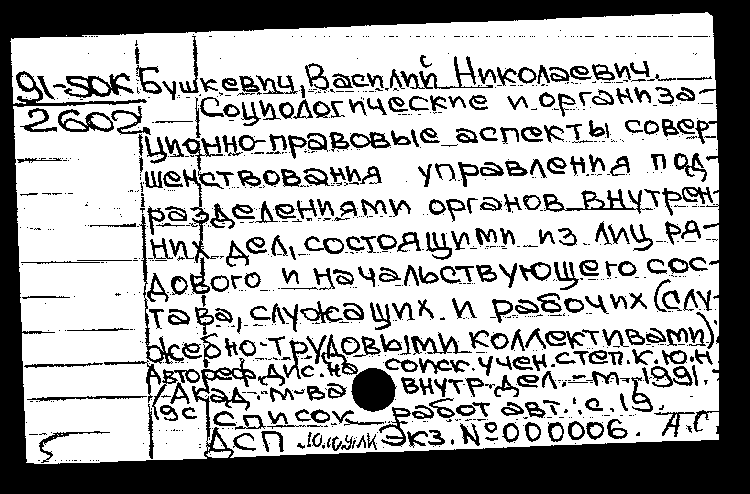 91-50К Бушкевич, Василий Николаевич.
2602 Социологические и организа-
ционно-правовые аспекты совер-
шенствования управления под-
разделениями органов внутрен-
них дел, состоящими из лиц ря-
дового и начальствующего сос-
тава, служащих и рабочих (слу-
жебно-трудовыми коллективами):
Автореф. дис. на соиск. учен. степ. к.ю.н
/Акад. м-ва внутр. дел. - М., 1991. -
19с
список работ авт.: с. 19.
5 ДСП Экз. №000006. А.С.